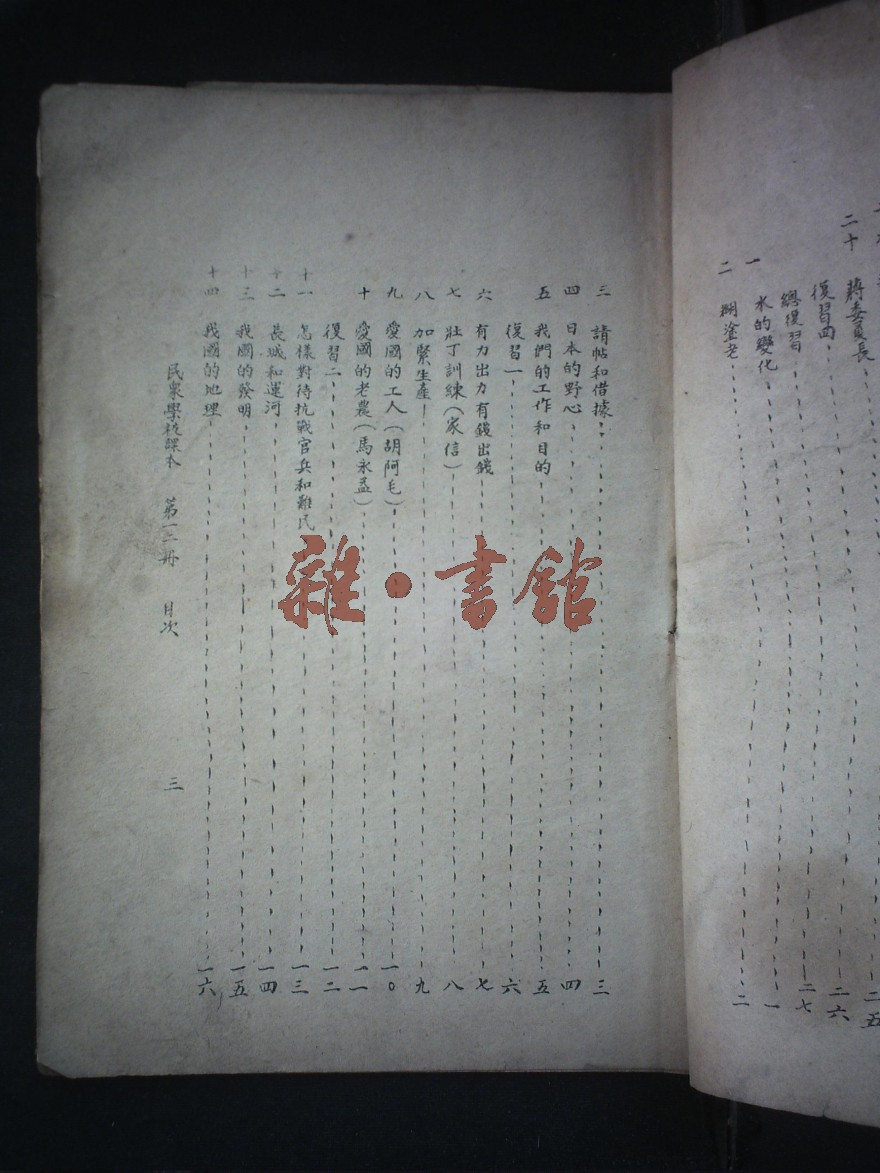 二十 蔣委員長 二五
復習四 二六
總復習 二七
一 水的變化 一
二 糊塗老 二
三 請帖和借據 三
四 日本的野心 四
五 我們的工作和目的 五
復習一 六
六 有力出力有錢出錢 七
七 壯丁訓練（家信） 八
八 加緊生產 九
九 愛國的工人（胡阿毛） 一〇
十 愛國的老農（馬永益） 一一
復習二 一二
十一 怎樣對待抗戰官兵和難民 一三
十二 長城和運河 一四
十三 我國的發明 一五
十四 我國的地理 一六
民眾學校課本 第一二冊 目次 三
雜·書館